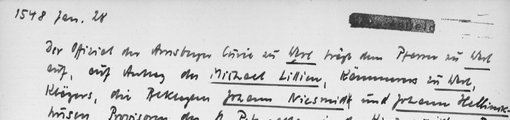 1548 Jan. 28
Der Offizial der Arnsberger Curie zu Werl trägt dem Pfarrer zu Werl
auf, auf Antrag des Michael Lilien, Kämmerers zu Werl,
Klägers, die Beklagten Johann Niesmidt und Johann Hellinck-
husen Provisoren der